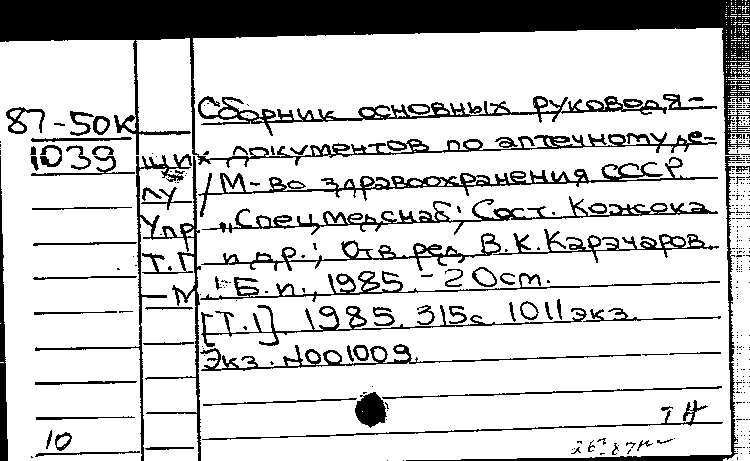 87-50к
1039
Сборник основных руководя-
щих документов по аптечному де-
лу / М-во здравоохранения СССР
Упр. „Спецмедснаб“; Сост. Кожока
Т.Г. и др.; Отв. ред. В.К. Карачаров.
— М.: Б.и., 1985. – 20 см.
[Т.1]. 1985. 315с. 1011 экз.
Экз. N001009.
10